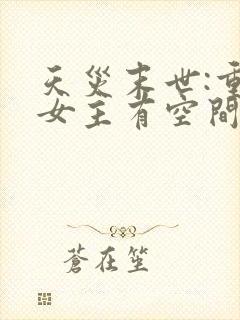 天災末世:重
女主有空間
蒼在笙